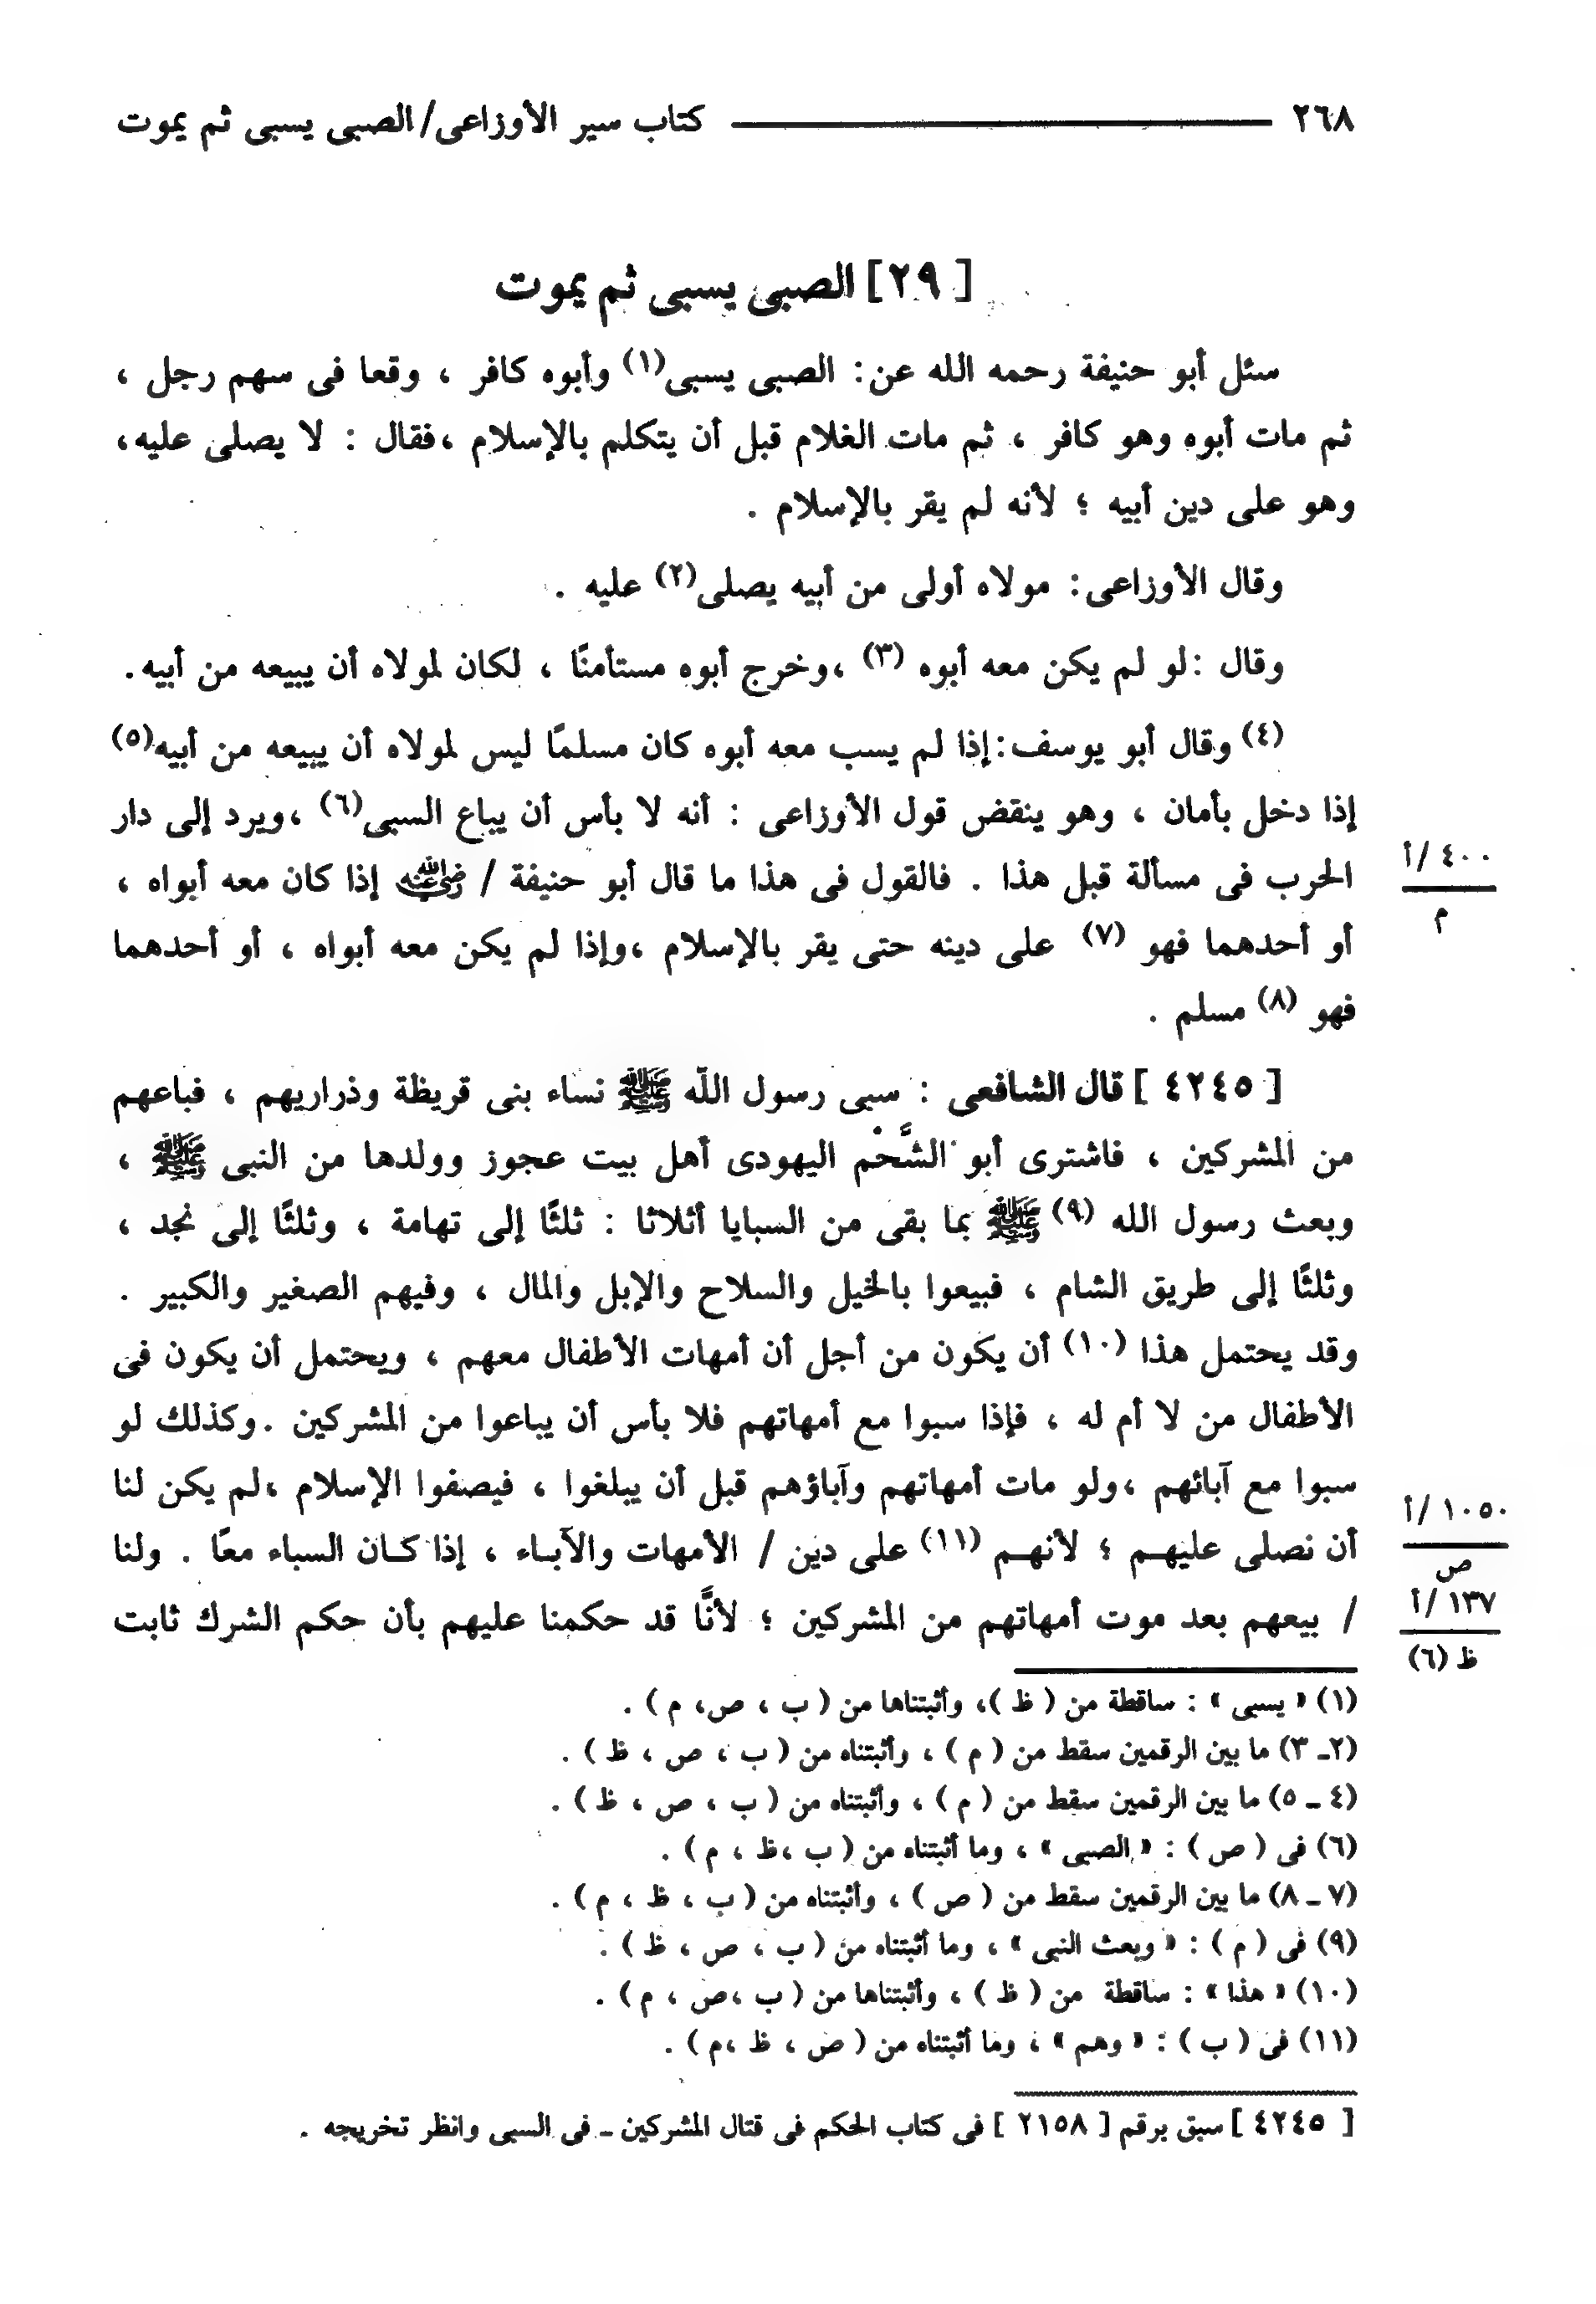 ٢٦٨ ــــــــــ كتاب سير الأوزاعى/ الصبى يسبى ثم يموت
[ ٢٩] الصبى يسبى ثم يموت
سئل أبو حنيفة رحمه الله عن: الصبى يسبى(١) وأبوه كافر ، وقعا فى سهم رجل ،
ثم مات أبوه وهو كافر ، ثم مات الغلام قبل أن يتكلم بالإسلام ،فقال : لا يصلى عليه،
وهو على دين أبيه ؛ لأنه لم يقر بالإسلام .
وقال الأوزاعى: مولاه أولى من أبيه يصلى(٢) عليه .
وقال :لو لم يكن معه أبوه (٣) ،وخرج أبوه مستأمنًا ، لكان لمولاه أن يبيعه من أبيه.
(٤) وقال أبو يوسف:إذا لم يسب معه أبوه كان مسلمًا ليس لمولاه أن يبيعه من أبيه(٥)
إذا دخل بأمان ، وهو ينقض قول الأوزاعى : أنه لا بأس أن يباع السبى(٦) ،ويرد إلى دار
الحرب فى مسألة قبل هذا . فالقول فى هذا ما قال أبو حنيفة / رضي الله عنه إذا كان معه أبواه ،
٤٠٠ /أ
م
أو أحدهما فهو (٧) على دينه حتى يقر بالإسلام ،وإذا لم يكن معه أبواه ، أو أحدهما
فهو (٨) مسلم .
[ ٤٢٤٥ ] قال الشافعى : سبى رسول اللّه ﷺ نساء بنى قريظة وذراريهم ، فباعهم
من المشركين ، فاشترى أبو الشَّحْم اليهودى أهل بيت عجوز وولدها من النبى ﷺ ،
وبعث رسول الله (٩) ﷺ بما بقى من السبايا أثلاثا : ثلثًا إلى تهامة ، وثلثًا إلى نجد ،
وثلثًا إلى طريق الشام ، فبيعوا بالخيل والسلاح والإبل والمال ، وفيهم الصغير والكبير .
وقد يحتمل هذا (١٠) أن يكون من أجل أن أمهات الأطفال معهم ، ويحتمل أن يكون فى
الأطفال من لا أم له ، فإذا سبوا مع أمهاتهم فلا بأس أن يباعوا من المشركين .وكذلك لو
سبوا مع آبائهم ،ولو مات أمهاتهم وآباؤهم قبل أن يبلغوا ، فيصفوا الإسلام ،لم يكن لنا
أن نصلى عليهـم ؛ لأنهـم (١١) على دين / الأمهات والآبـاء ، إذا كـان السباء معًا . ولنا
١٠٥٠ /أ
ص
/ بيعهم بعد موت أمهاتهم من المشركين ؛ لأنَّا قد حكمنا عليهم بأن حكم الشرك ثابت
١٣٧ /أ
ظ (٦)
(١) « يسبى » : ساقطة من ( ظ )، وأثبتناها من ( ب ، ص، م ) .
(٢ـ ٣) ما بين الرقمين سقط من ( م ) ، وأثبتناه من ( ب ، ص ، ظ ) .
(٤ ـ ٥) ما بين الرقمين سقط من ( م ) ، وأثبتناه من ( ب ، ص ، ظ ) .
(٦) فى ( ص ) : « الصبى » ، وما أثبتناه من ( ب ،ظ ، م ) .
(٧ ـ ٨) ما بين الرقمين سقط من ( ص ) ، وأثبتناه من ( ب ، ظ ، م ) .
(٩) فى ( م ) : « وبعث النبى » ، وما أثبتناه من ( ب ، ص ، ظ ) .
(١٠) « هذا » : ساقطة من ( ظ ) ، وأثبتناها من ( ب ،ص ، م ) .
(١١) فى ( ب ) : « وهم » ، وما أثبتناه من ( ص ، ظ ،م ) .
[ ٤٢٤٥ ] سبق برقم [ ٢١٥٨ ] فى كتاب الحكم فى قتال المشركين ـ فى السبى وانظر تخريجه .